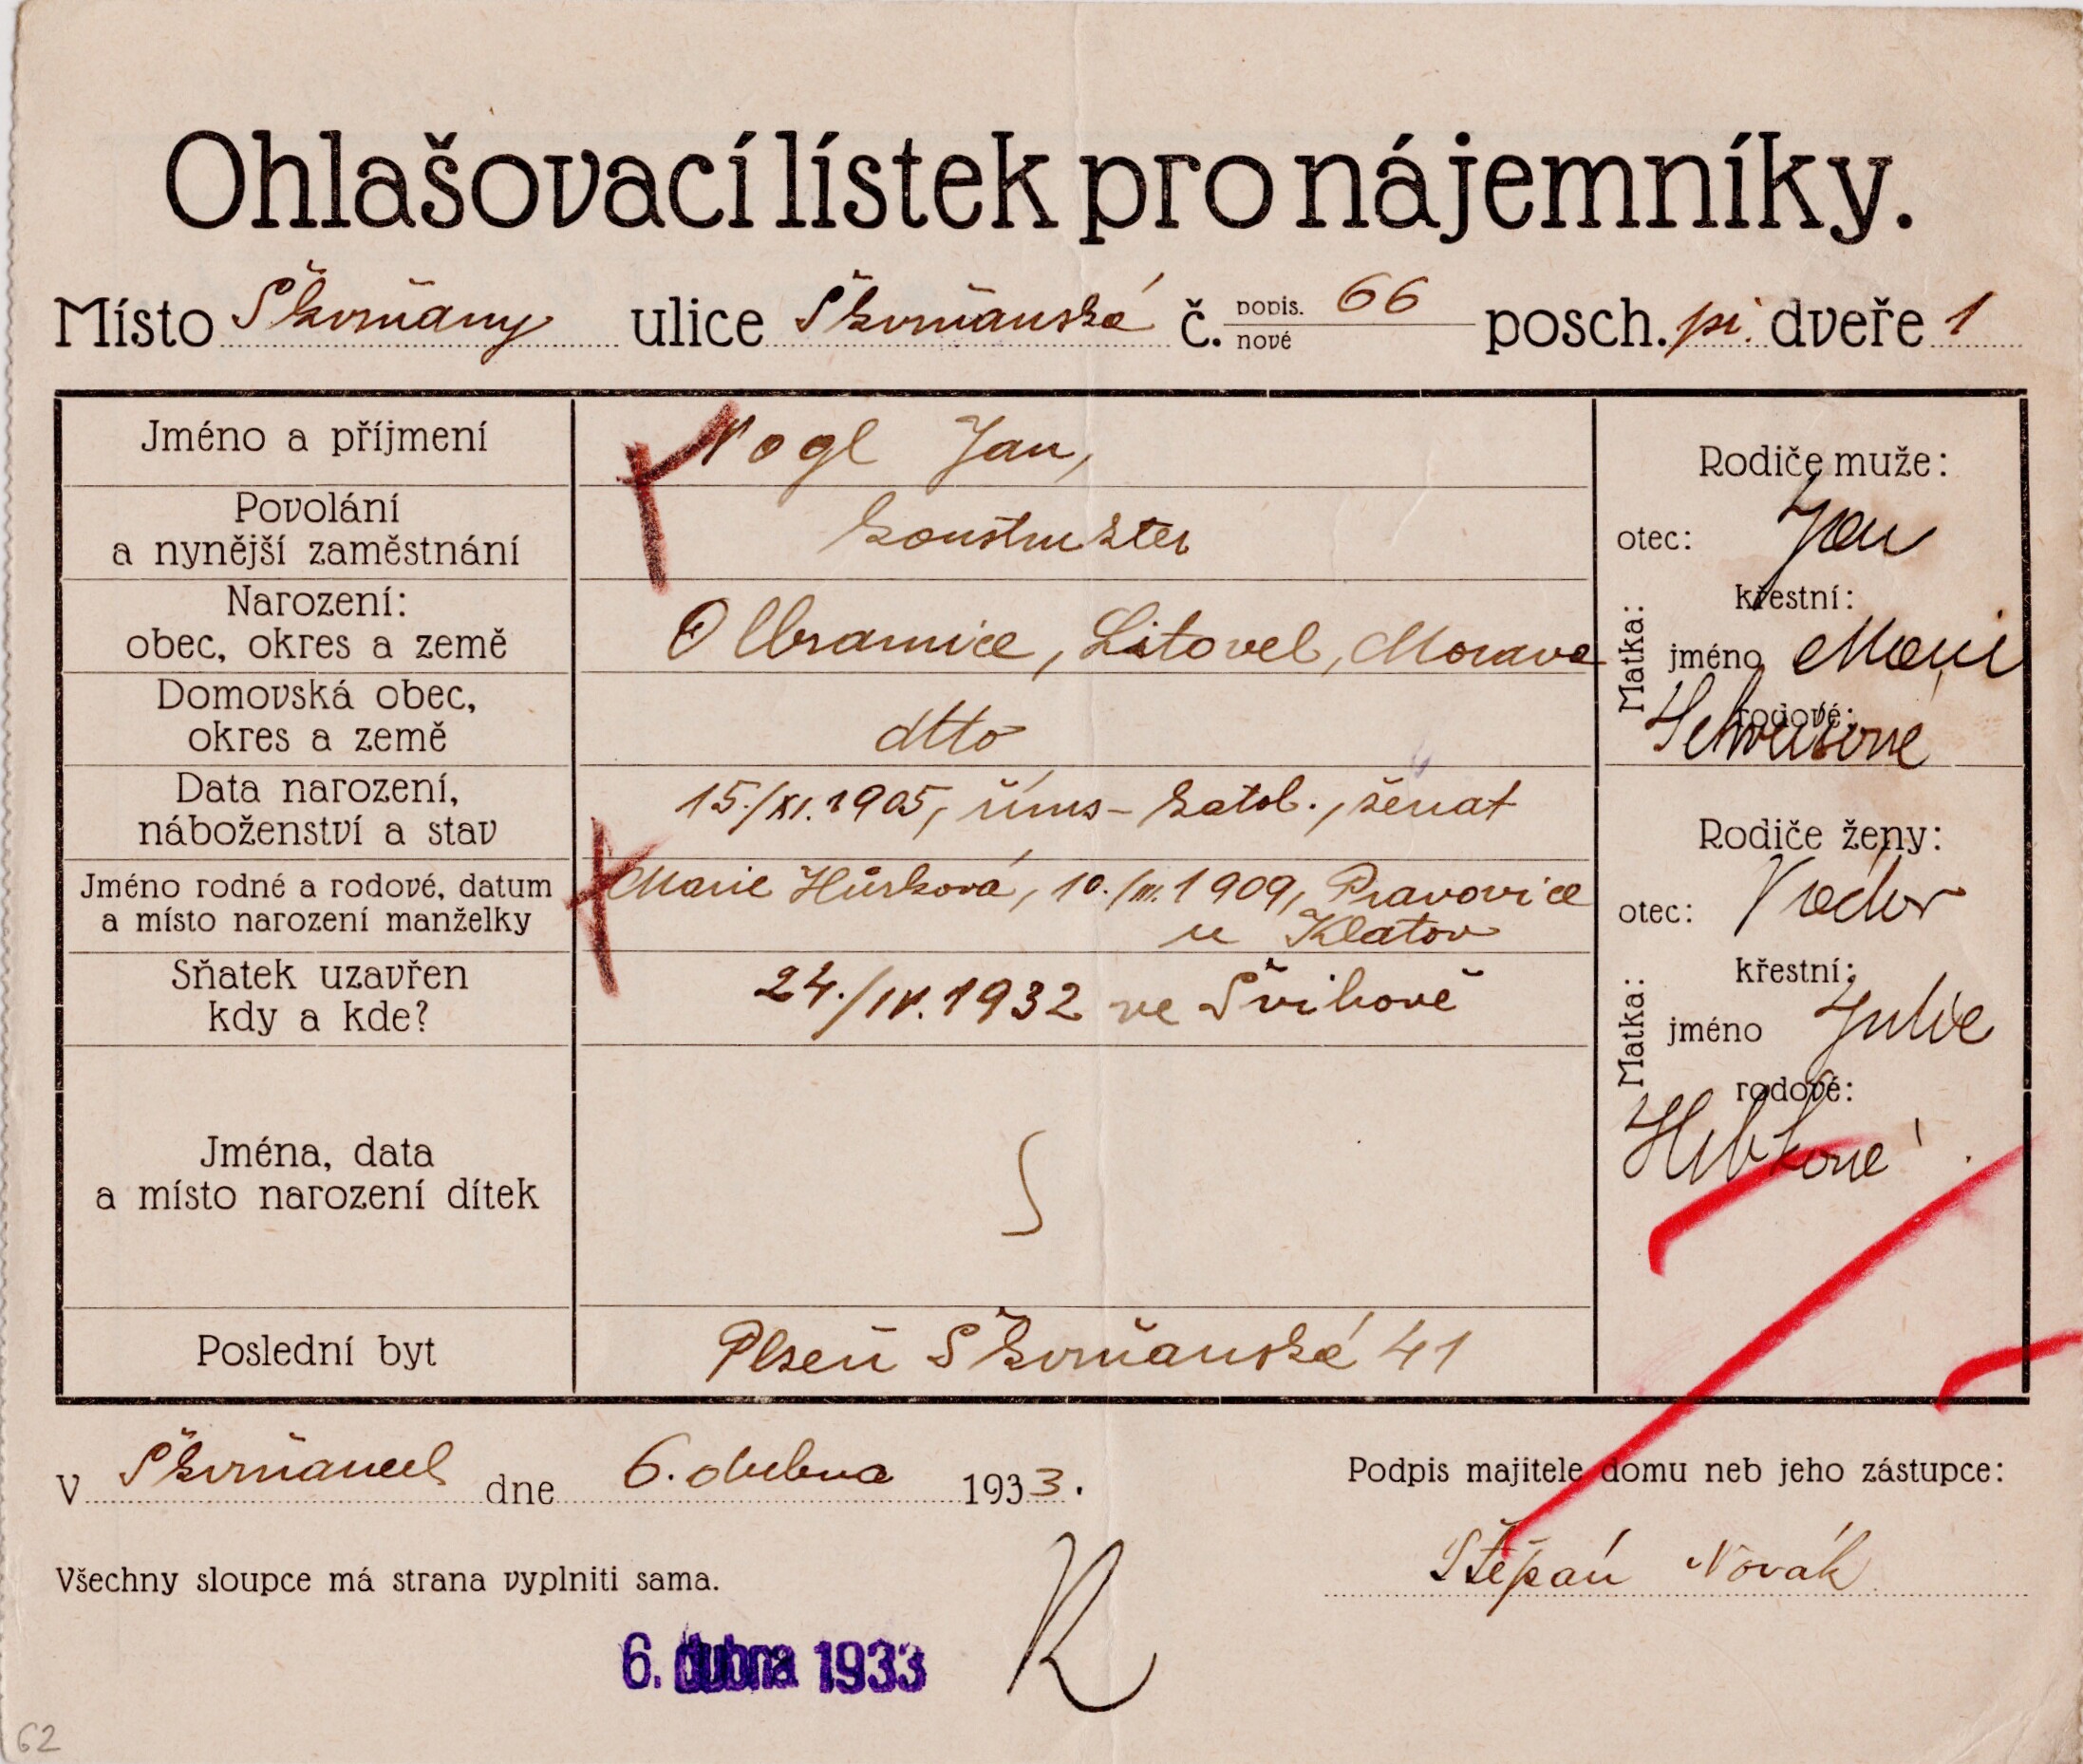 Ohlašovací lístek pro nájemníky.
Místo Škvrňany ulice Škvrňanská č. popis. 66 nové posch. při. dveře 1
Jméno a příjmení Vogl Jan,
Povolání
a nynější zaměstnání konstrukter
Narození:
obec, okres a země Olbramice, Litovel, Morava
Domovská obec,
okres a země dtto
Data narození,
náboženství a stav 15./XI. 1905, říms-katol., ženat
Jméno rodné a rodové, datum
a místo narození manželky Marie Hůrková, 10./III. 1909, Pravovice
u Klatov
Sňatek uzavřen
kdy a kde? 24./IV. 1932 ve Švihově
Jména, data
a místo narození dítek
Poslední byt Plzeň Škvrňanská 41
Rodiče muže:
otec: Jan
Matka:
křestní:
jméno Marie
rodové:
Rodiče ženy:
otec:
Matka:
křestní:
jméno Julie
rodové:
V Škvrňanech dne 6. dubna 1933.
Podpis majitele domu neb jeho zástupce:
Štěpán Novák
Všechny sloupce má strana vyplniti sama.
6. dubna 1933
62